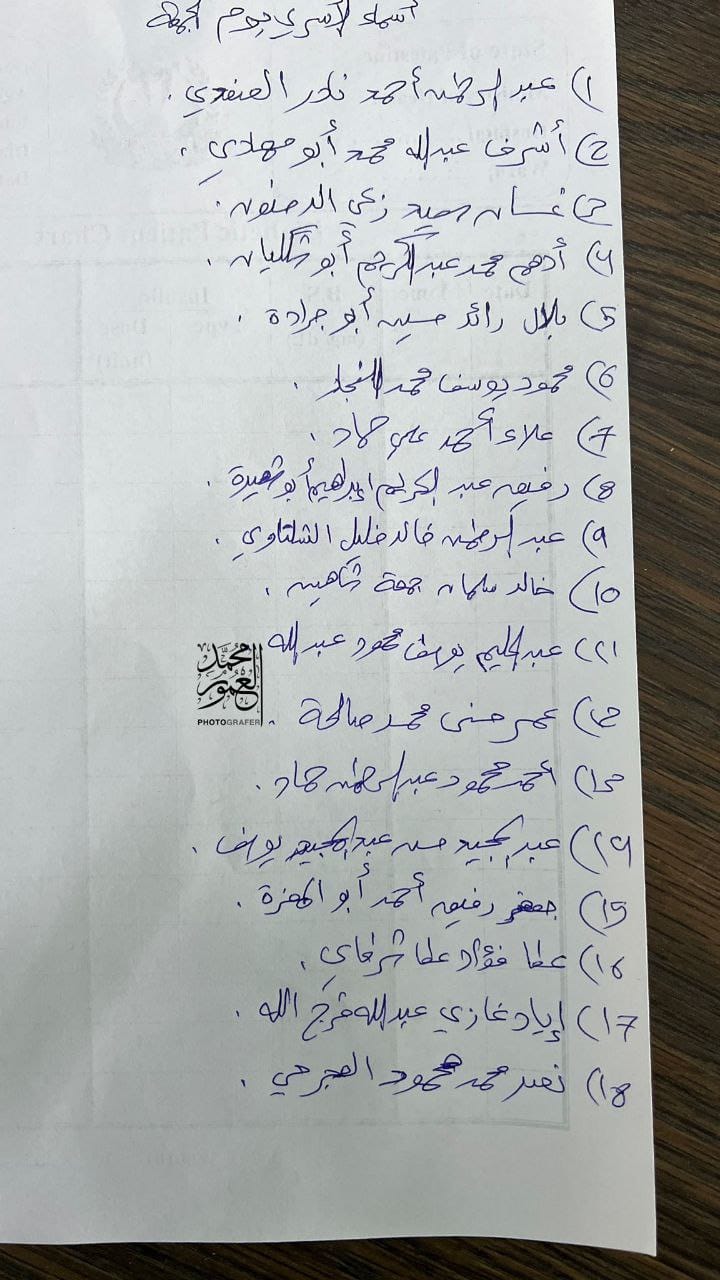 أسماء الأسرى يوم الجمعة
1) عبد الرحمن أحمد نادر الصفدي .
2) أشرف عبدالله محمد أبو مهادي .
3) غسان زعبي .
4) أدهم محمد عبد الكريم أبو شكليان .
5) بلال رائد حسين أبو جرادة .
6) محمود يوسف محمد النجار .
7) علاء أحمد علي حماد .
8) رفيق عبد الكريم ابراهيم أبو شعيرة .
9) عبد الرحمن خالد خليل الشلتاوي .
10) خالد سلمان جمعة شاهين .
11) عبد الحليم يوسف محمود عبدالله
12) عمر حسني محمد صالحة .
13) أحمد محمود عبد الرحمن حماد .
14) عبد المجيد حسن عبد المجيد يوسف .
15) جعفر رفيق أحمد أبو .
16) عطا فؤاد عطا شرفاي .
17) إياد غازي عبدالله فرج الله .
18) نصر محمد محمود .
محمد العمور
PHOTOGRAFER
State of Palestine